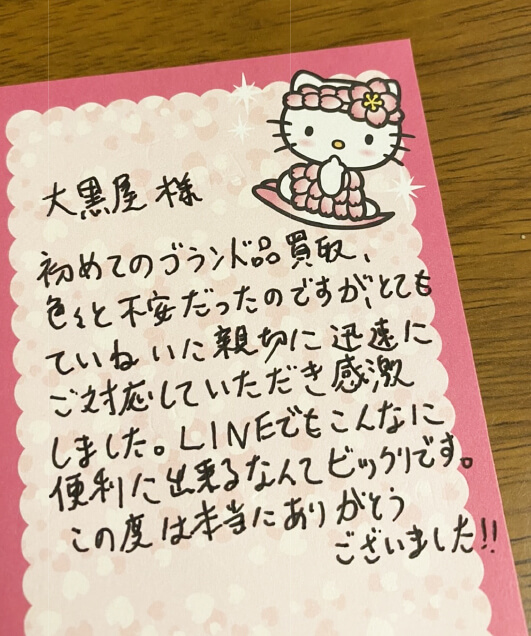 大黒屋 様
初めてのブランド品買取、
色々と不安だったのですが、とても
ていねいに親切に迅速に
ご対応していただき感激
しました。LINEでもこんなに
便利に出来るなんてビックリです。
この度は本当にありがとう
ございました!!